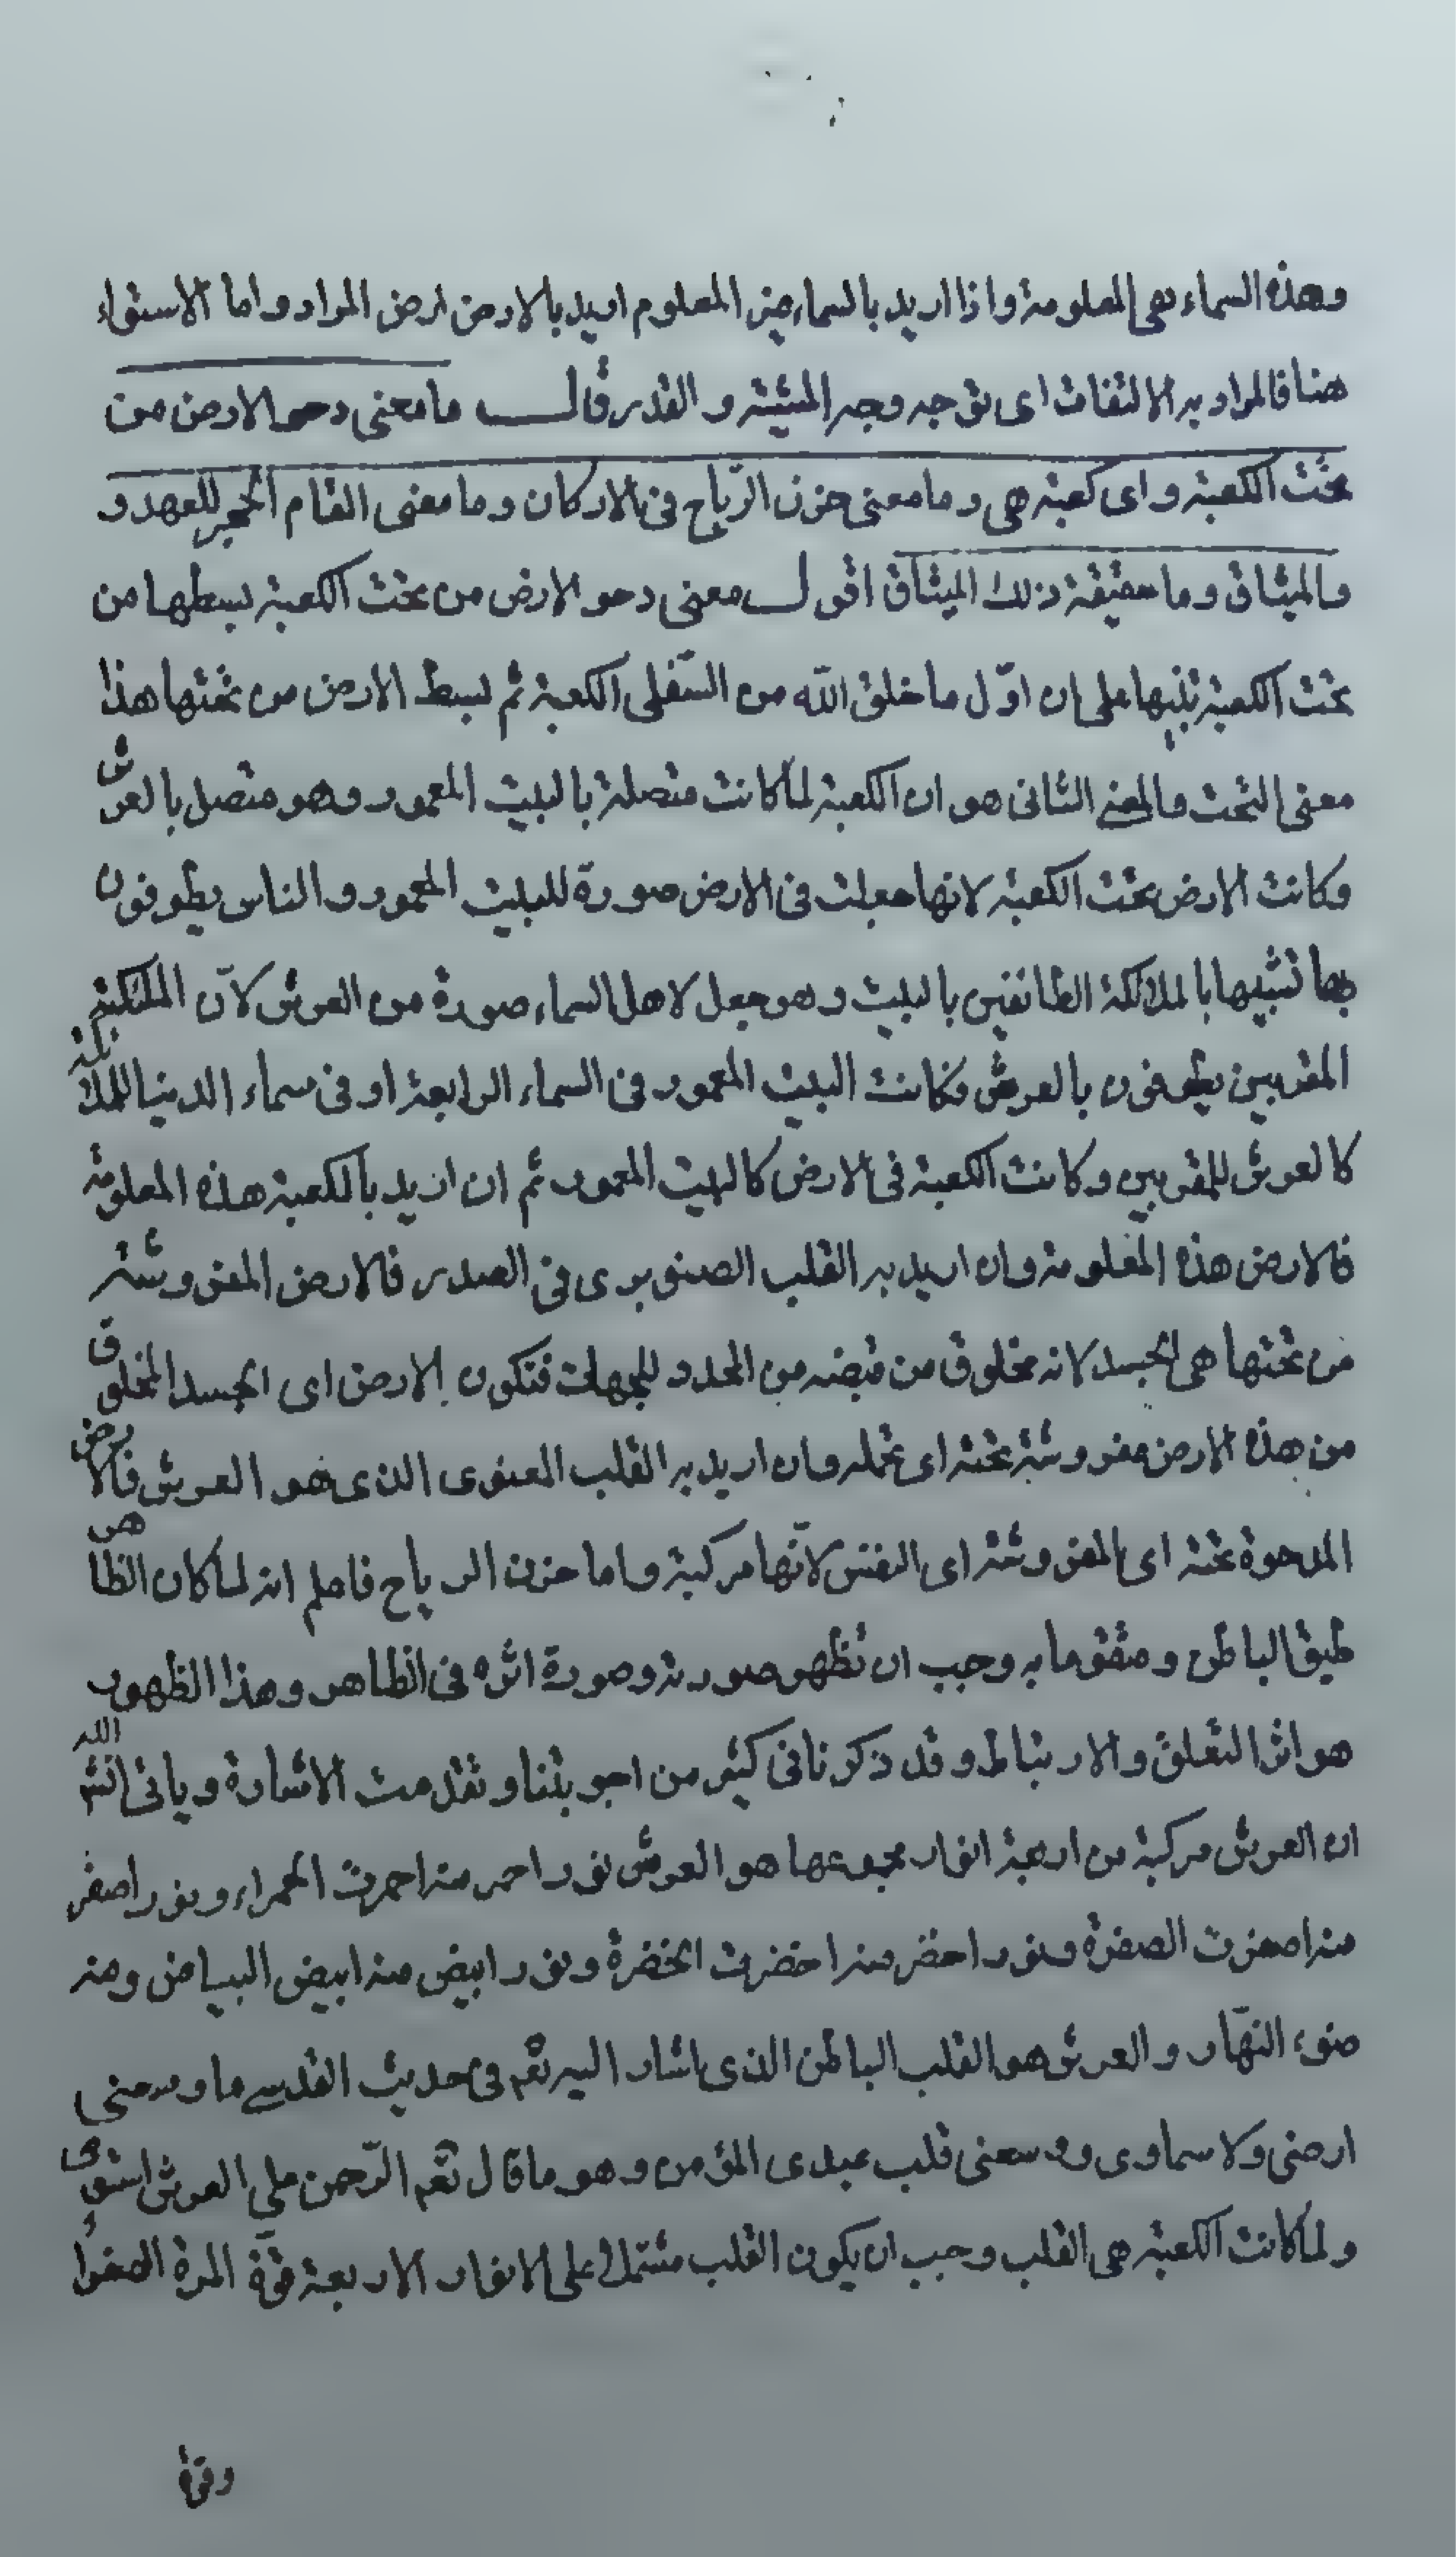 وهذه السماء هى المعلومة واذا اريد بالسماء غير المعلوم اريد بالارض ارض المراد واما الاستواء
هنا فالمراد به الالتفات اى توجه وجه المشيئة و القدر قال ما معنى دحو الارض من
تحت الكعبة و اى كعبة هى و ما معنى خزن الرّياح فى الاركان و ما معنى القام الحجر للعهد و
والميثاق وما حقيقة ذلك الميثاق اقول معنى دحو الارض من تحت الكعبة بسطها من
تحت الكعبة تنبيها على ان اوّل ما خلق الله من السّفلى الكعبة ثم بسط الارض من تحتها هذا
معنى التحت والمعنى الثانى هو ان الكعبة لما كانت متصلة بالبيت المعمور وهو متصل بالعرش
وكانت الارض تحت الكعبة لانها جعلت فى الارض صورة للبيت المعمور و الناس يطوفون
بها تشبيها بالملائكة الطائفين بالبيت وهو جعل لاهل السماء صورة من العرش لانّ الملئكة
المقربين يطوفون بالعرش فكانت البيت المعمور فى السماء الرابعة او فى سماء الدنيا للملائكة
كالعرش للمقربين وكانت الكعبة فى الارض كالبيت المعمور ثم ان اريد بالكعبة هذه المعلومة
فالارض هذه المعلومة وان اريد به القلب الصنوبرى فى الصدر فالارض المفروشة
من تحتها هى الجسد لانه مخلوق من قبضة من المحدد للجهات فتكون الارض اى الجسد المخلوق
من هذه الارض مفروشة تحته اى تحمله وان اريد به القلب المعنوى الذى هو العرش فالارض
المدحوة تحته اى المفروشة اى النفس لانّها مركبة واما خزن الرياح فاعلم انه لما كان الظاهر
طبق الباطن و متقوما به وجب ان تظهر صورته وصورة اثره فى الظاهر وهذا الظهور
هو اثر التعلق والارتباط وقد ذكرنا فى كثير من اجوبتنا و تقدمت الاشارة و ياتى انشاء الله
ان العرش مركبة من اربعة انوار مجموعها هو العرش نور احمر منه احمرت الحمراء و نور اصفر
منه اصفرت الصفرة و نور اخضر منه اخضرت الخضرة و نور ابيض منه ابيض البياض ومنه
ضوء النهّار و العرش هو القلب الباطن الذى اشار اليه تعم فى حديث القدسى ما وسعنى
ارضى ولا سماوى و وسعنى قلب عبدى المؤمن وهو ما قال تعم الرّحمن على العرش استوى
ولما كانت الكعبة هى القلب وجب ان يكون القلب مشتملا على الانوار الاربعة قوّة المرة الصفراء
وقوة